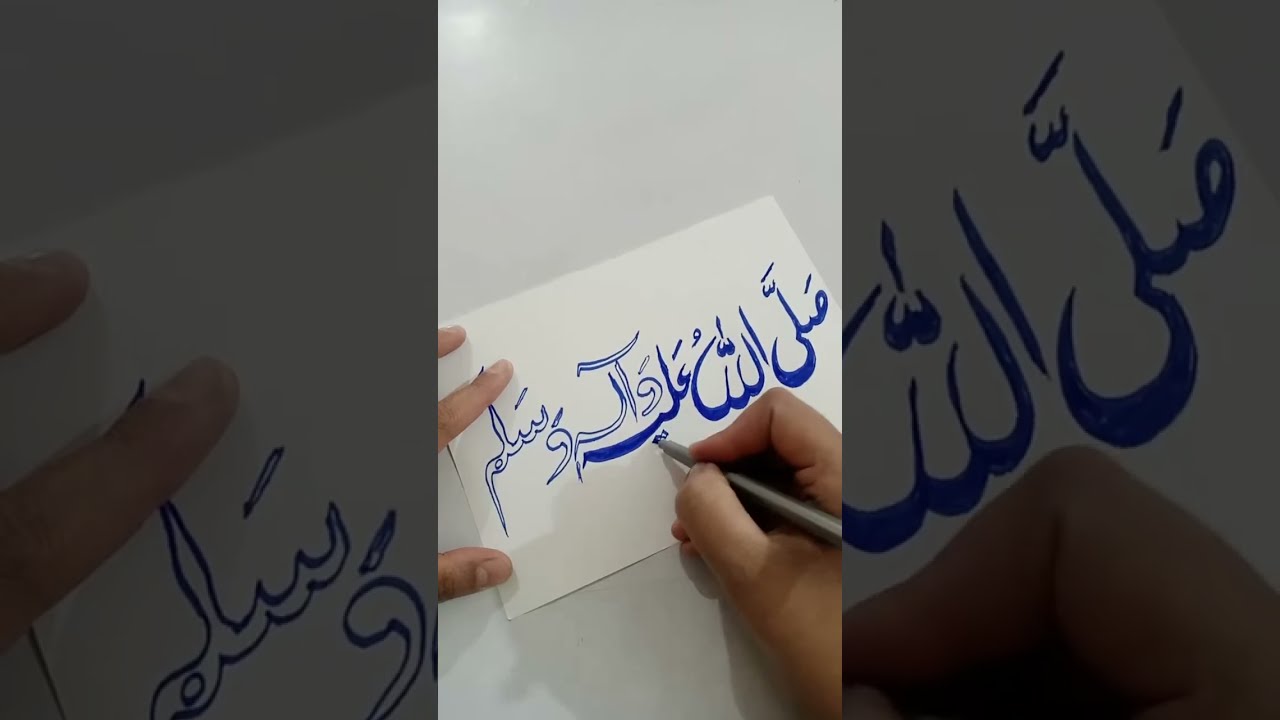 صَلَّى اللّٰهُ عَلَيه وَآلہ وَسَلم